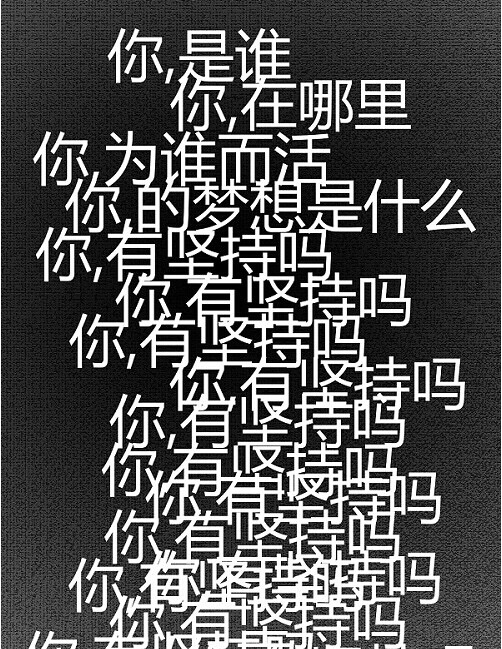 你,是谁
你,在哪里
你,为谁而活
你,的梦想是什么
你,有坚持吗
你,有坚持吗
你,有坚持吗
你,有坚持吗
你,有坚持吗
你,有坚持吗
你,有坚持吗
你,有坚持吗
你,有坚持吗
你,有坚持吗
你,有坚持吗